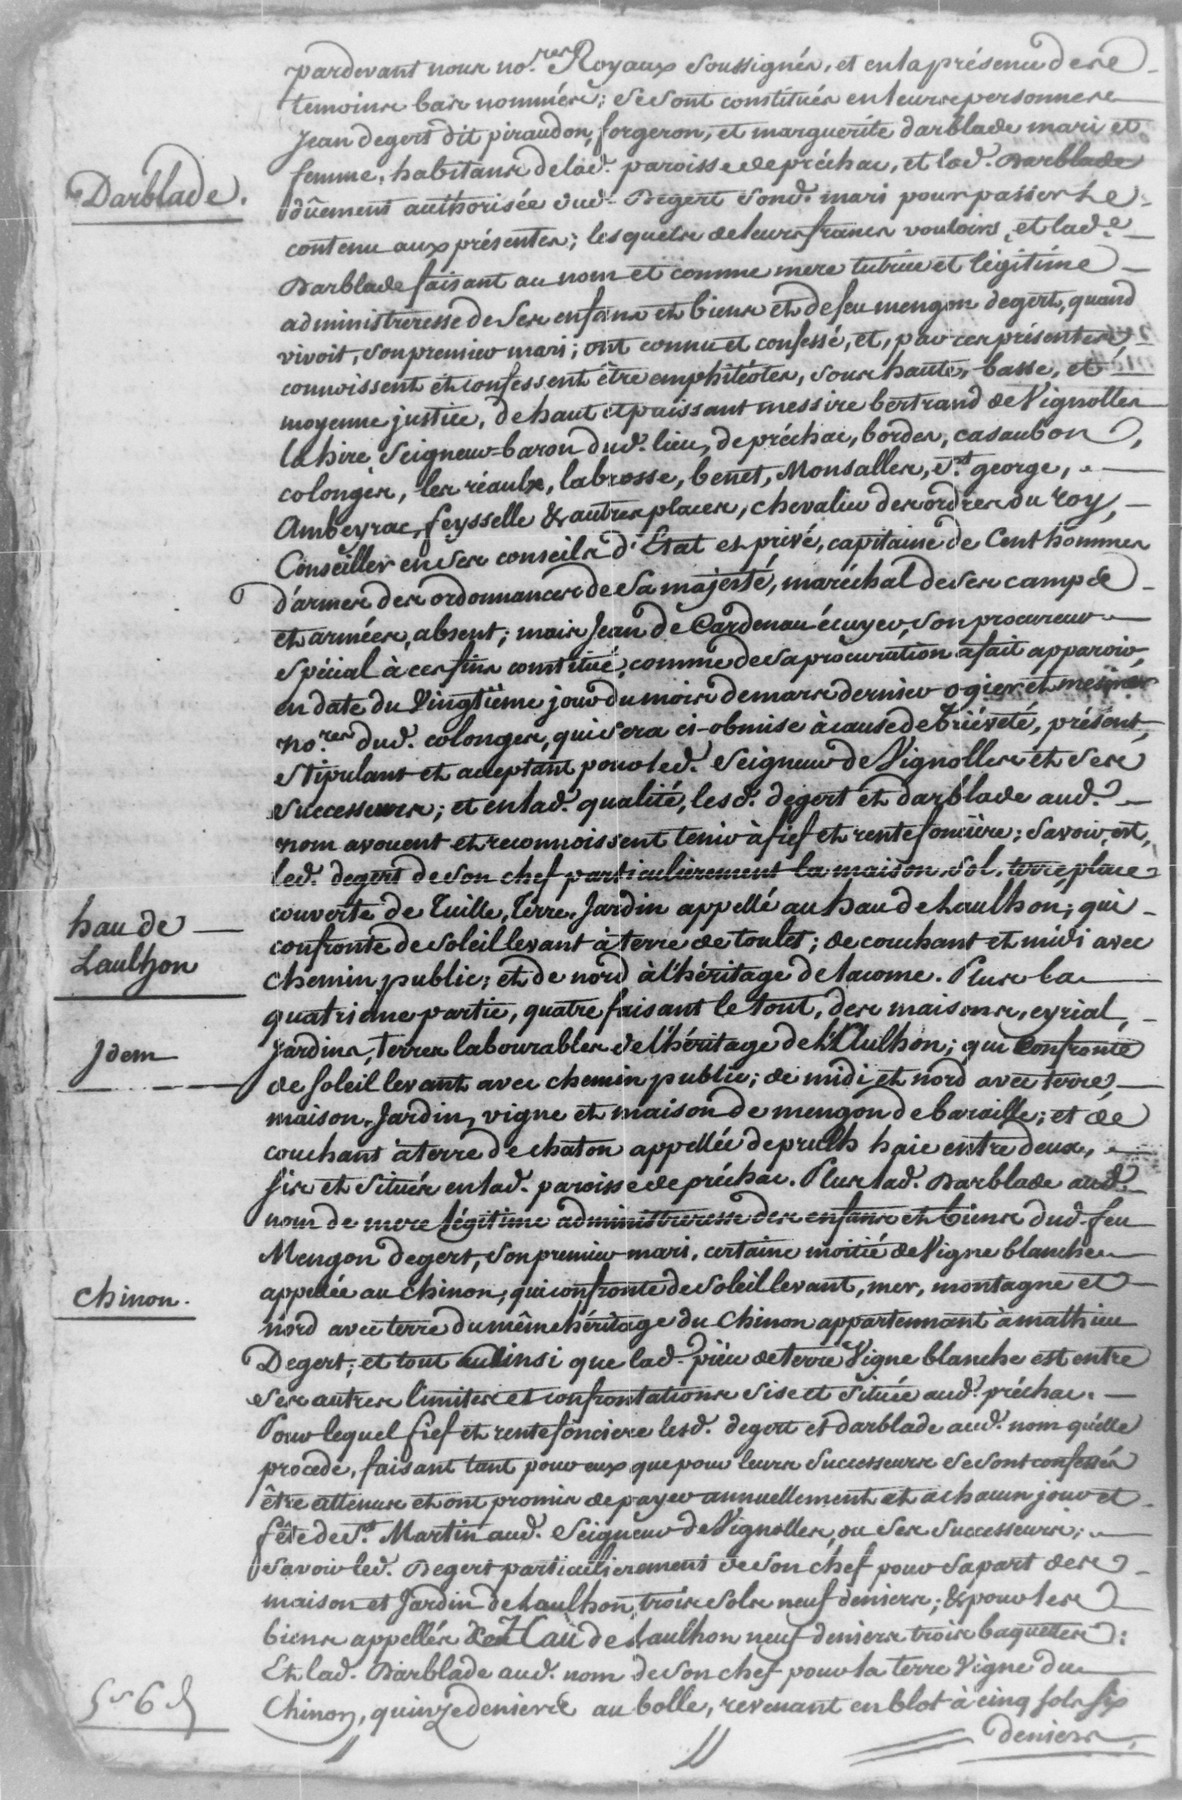 pardevant nous no.res Royaux soussignés, et en la présence des
temoins bas nommés; se sont constitués en leurs personnes
Jean degert dit piraudon, forgeron, et marguerite darblade mari et
femme, habitans de lad. paroisse de préchac, et lad. Darblade
Darblade.
dûement authorisée dud. Degert sond. mari pour passer le
contenu aux présentes; lesquels de leurs francs vouloirs, et lad.e
Darblade faisant au nom et comme mere tutrice et légitime
administreresse de ses enfans et biens et de feu mengon degert, quand
vivoit, son premier mari; ont connu et confessé, et, par ces présentes,
connoissent et confessent être emphitéotes, sous haute, basse, et
moyenne justice, de haut et puissant messire bertrand de Vignolles
la hire, Seigneur-baron dud. lieu, de préchac, bordes, casaubon,
colonges, les réaulx, labrosse, benet, Monsalles, St. george,
Ambeyrac, feysselle & autres places, chevalier des ordres du roy,
Conseiller en ses conseils d'Etat et privé, capitaine de Cent hommes
d'armes des ordonnances de Sa majesté, maréchal de ses camps
et armées, absent; mais Jean de Cardenau écuyer, son procureur
spécial à ces fins constitué, comme de sa procuration a fait apparoir,
en date du Vingtième jour du mois de mars dernier ogier et mesmer
no.res dud. colonges, qui sera ci-obmise à cause de briéveté, présent,
stipulant et acceptant pour led. Seigneur de Vignolles et ses
successeurs; et en lad. qualité, lesd. degert et darblade aud.
nom avouent et reconnoissent tenir à fief et rente foncière; savoir est,
led. degert de son chef particulièrement la maison, sol, terre place
couverte de Tuille, Terre, Jardin appellé au hau de Laulhon; qui
hau de
Laulhon
confronte de soleil levant à terre de toulet; de couchant et midi avec
chemin public; et de nord à l'héritage de lacome. Plus la
quatrieme partie, quatre faisant le tout, des maisons, eyrial,
Jdem
Jardins, terres labourables de l'héritage de L'Aulhon; qui Confronte
de soleil levant avec chemin public; de midi et nord avec terre,
maison, Jardin, vigne et maison de mengon de baraille; et de
couchant à terre de chaton appellée de pruth haie entre deux,
sis et situés en lad. paroisse de préchac. Plus lad. Darblade aud.
nom de mere légitime administreresse des enfans et biens dud. feu
Mengon degert, son premier mari, certaine moitié de Vigne blanche
appellée au Chinon; qui confronte de soleil levant, mer, montagne et
Chinon.
nord avec terre du même héritage du Chinon appartennant à mathieu
Degert; et tout ainsi que lad. pièce de terre Vigne blanche est entre
ses autres limites et confrontations sise et située aud. préchac.
Pour lequel fief et rente foncière lesd. degert et darblade aud. nom qu'elle
procède, faisant tant pour eux que pour leurs successeurs se sont confessés
être attenus et ont promis de payer annuellement et à chacun jour et
fête de St. Martin aud. Seigneur de Vignolles, ou ses successeurs;
savoir led. Degert particulièrement de son chef pour sa part des
maison et Jardin de Laulhon, trois sols neuf deniers; & pour les
biens appellés Hau de Laulhon neuf deniers trois baquettes:
Et lad. Darblade aud. nom de son chef pour la terre Vigne du
Chinon, quinze deniers au bolle, revenant en blot à cinq sols six
5s 6d
deniers,